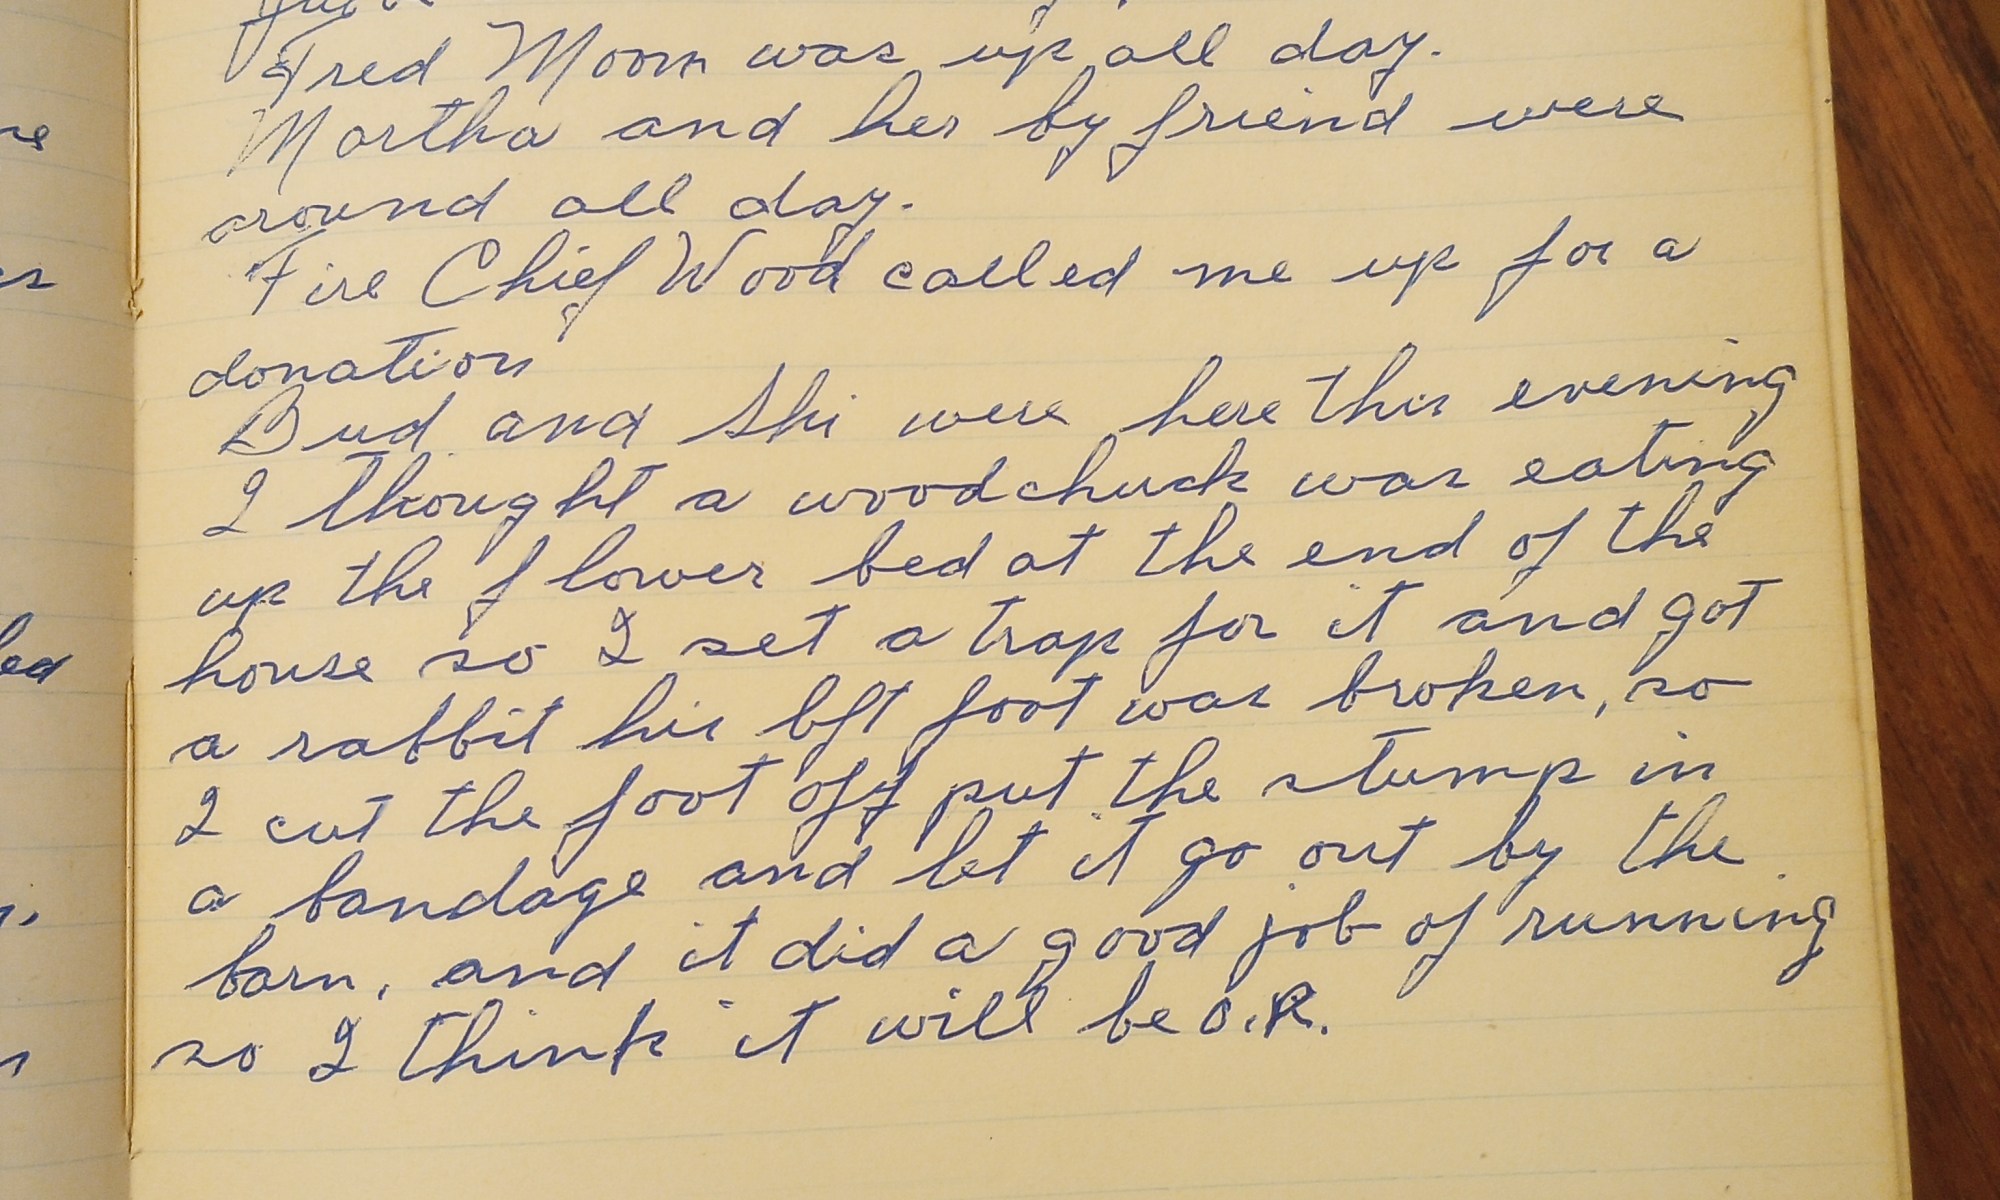 Fred Moom was up all day.
Martha and her by friend were
around all day.
Fire Chief Wood called me up for a
donation
Bud and Shi were here this evening
I thought a woodchuck was eating
up the flower bed at the end of the
house so I set a trap for it and got
a rabbit his lft foot was broken, so
I cut the foot off put the stump in
a bandage and let it go out by the
barn, and it did a good job of running
so I think it will be O.K.